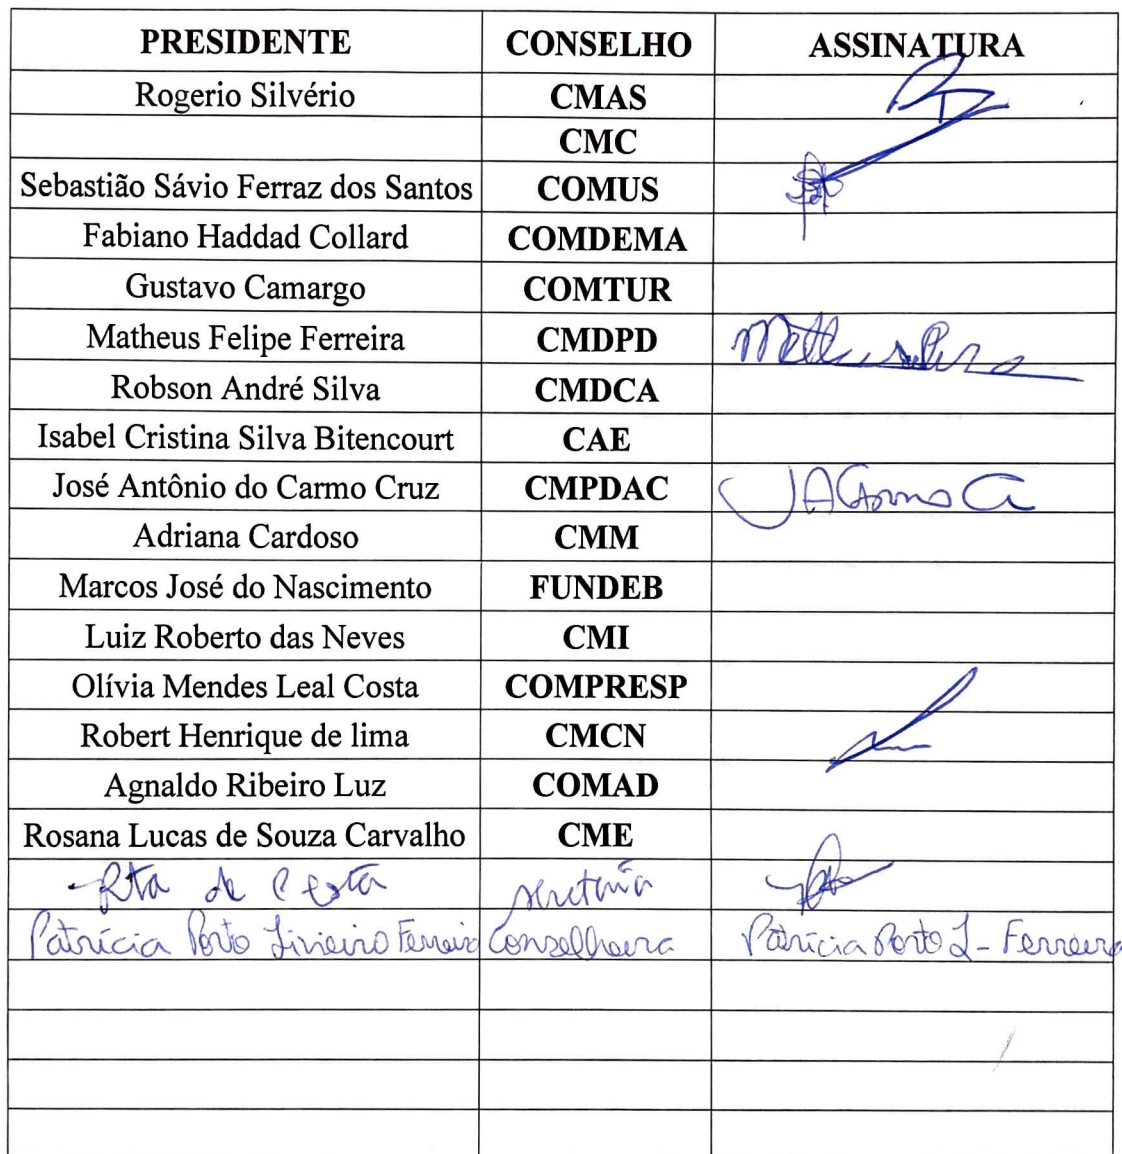 PRESIDENTE CONSELHO ASSINATURA
Rogerio Silvério CMAS
CMC
Sebastião Sávio Ferraz dos Santos COMUS
Fabiano Haddad Collard COMDEMA
Gustavo Camargo COMTUR
Matheus Felipe Ferreira CMDPD
Robson André Silva CMDCA
Isabel Cristina Silva Bitencourt CAE
José Antônio do Carmo Cruz CMPDAC
Adriana Cardoso CMM
Marcos José do Nascimento FUNDEB
Luiz Roberto das Neves CMI
Olívia Mendes Leal Costa COMPRESP
Robert Henrique de lima CMCN
Agnaldo Ribeiro Luz COMAD
Rosana Lucas de Souza Carvalho CME
Rita de
Patrícia Porto Ferreira Conselheira Patrícia Porto L- Ferreira